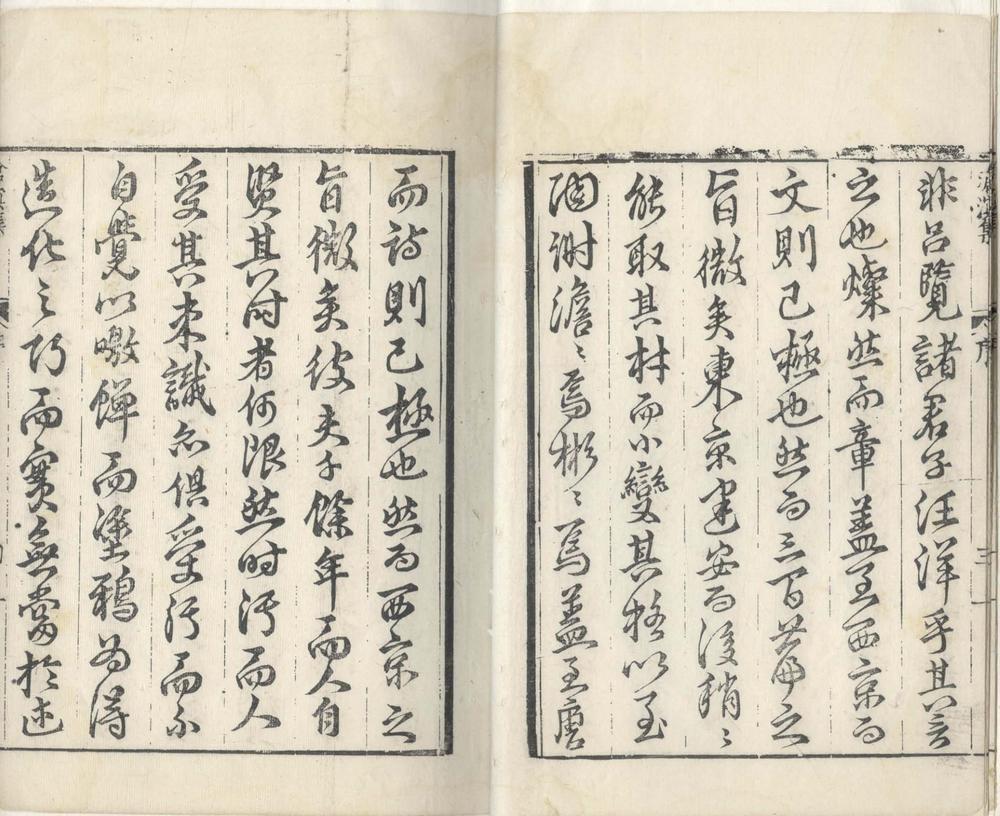 非呂覽諸君子汪洋乎其言
之也燦然而章蓋至西京而
文則已極也然而三百篇之
旨微矣東京建安而後稍〻
能取其材而小變其格以至
陶謝澹〻焉彬〻焉蓋至唐
而詩則已極也然而西京之
旨微矣彼夫千餘年而人自
賢其時者何限然時污而人
受其污識亦俱受污而不
自覺以噭蟬而塗鴉為得
造化之巧而實無當於述